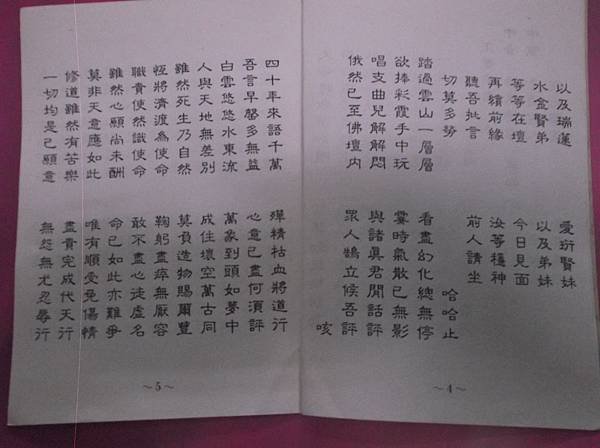 以及瑞蓮　愛珩賢妹
水金賢弟　以及弟妹
等等在壇　今日見面
再續前緣　汝等穫神
聽吾批言　前人請坐
切莫多勞　哈哈止
踏過雲山一層層　看盡幻化總無停
欲捧彩霞手中玩　霎時氣散已無影
唱支曲兒解解悶　與諸真君閒話評
俄然已至佛壇內　眾人鵠立候吾評
咳
～4～
四十年來語千萬　殫精枯血將道行
吾言早罄多無益　心意已盡何須評
白雲悠悠水東流　萬象到頭如夢中
人與天地無差別　成住壞空萬古同
雖然死生乃自然　莫負造物賜爾豐
恆將濟渡為使命　鞠躬盡瘁無厭容
職責使然識使命　敢不盡心徒虛名
雖然心願尚未酬　命已如此亦難爭
莫非天意應如此　唯有順受免傷情
修道雖然有苦樂　盡責完成代天行
一切均是己願意　無怨無尤忍辱行
～5～